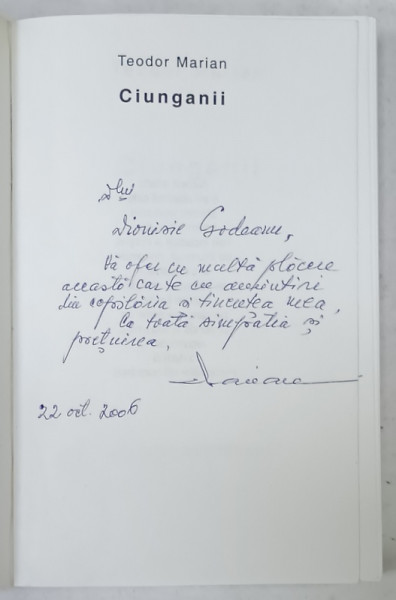 Teodor Marian
Ciunganii
Dlui
Dionisie Godeanu,
Vă ofer cu multă plăcere
această carte cu amintiri
din copilăria și tinerețea mea,
Cu toată simpatia și
prețuirea,
22 oct. 2006